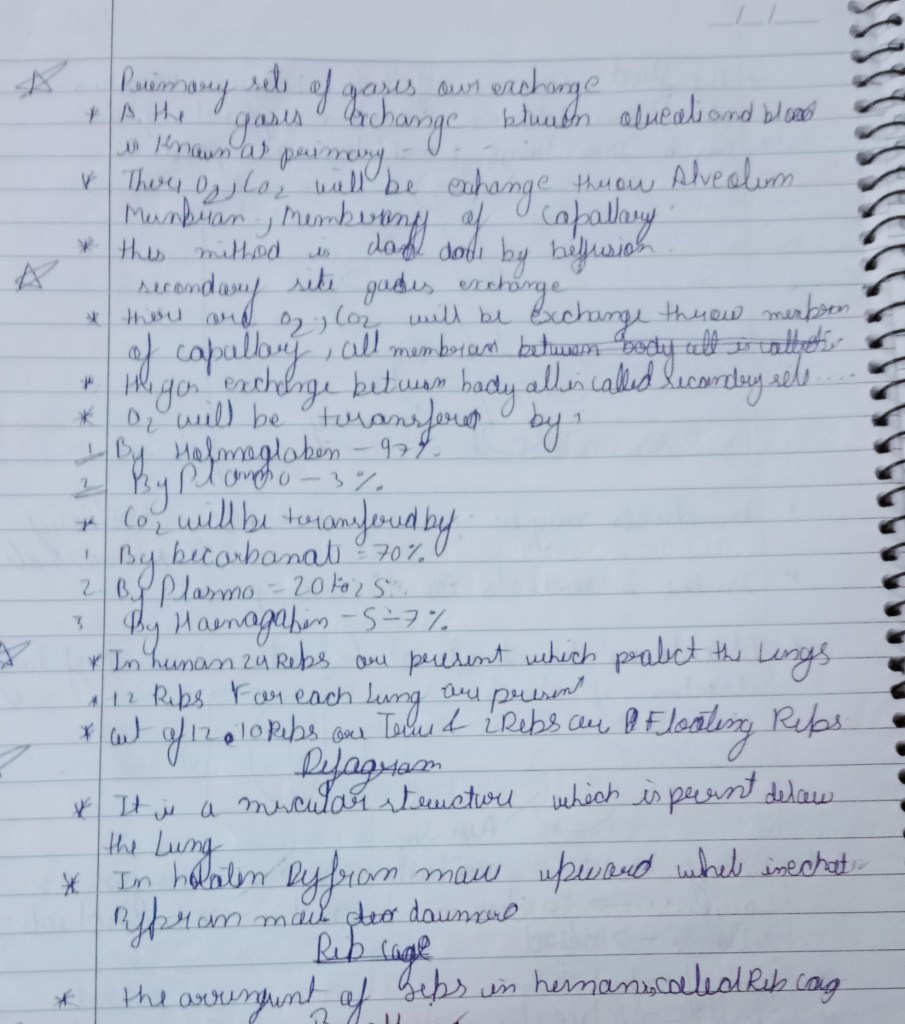 Primary sets of gases our exchange
* A the gases exchange btween alveoli and blood
is Known as primary -
* There O2, CO2 will be exchange throw Alveolim
Munbrian, Memberany of capallary.
* this mithod is done by
secondary site gases exchange
* there are O2, CO2 will be Exchange throw
of capallary, all membrian between body all is called
* the gas exchange between body all is called secondry sele....
* O2 will be transfered by,
1 By Haemoglaben - 97%.
2 By - 3%.
* CO2 will be transfered by
1. By becarbanat = 70%.
2 By Plasma = 20 to 25%.
3 By Haemagaben - 5-7%.
* In human 24 Rebs are present which pratect the Lungs
* 12 Ribs For each Lung are present
* out of 12, 10 Rebs are & 2 Rebs are Floating Rebs
Dyfagram
* It is a muscular structure which is persent
the Lung
* In Dyfram upward
Dyfram downward
Rib cage
* the of in called Reb cag